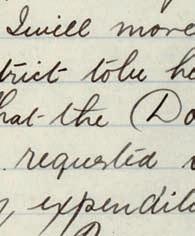 I will move
trict to be he
hat the (Do
requested
expendit